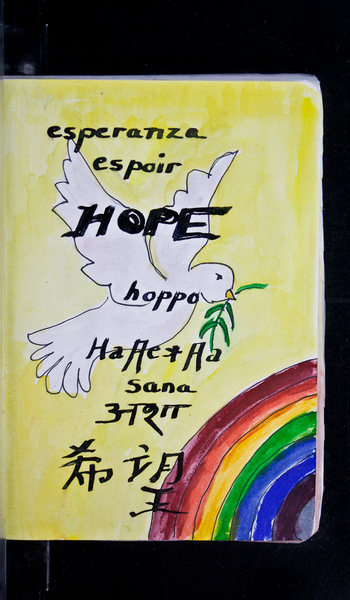 esperanza
espoir
HOPE
hoppo
Надежда
sana
आशा
希望